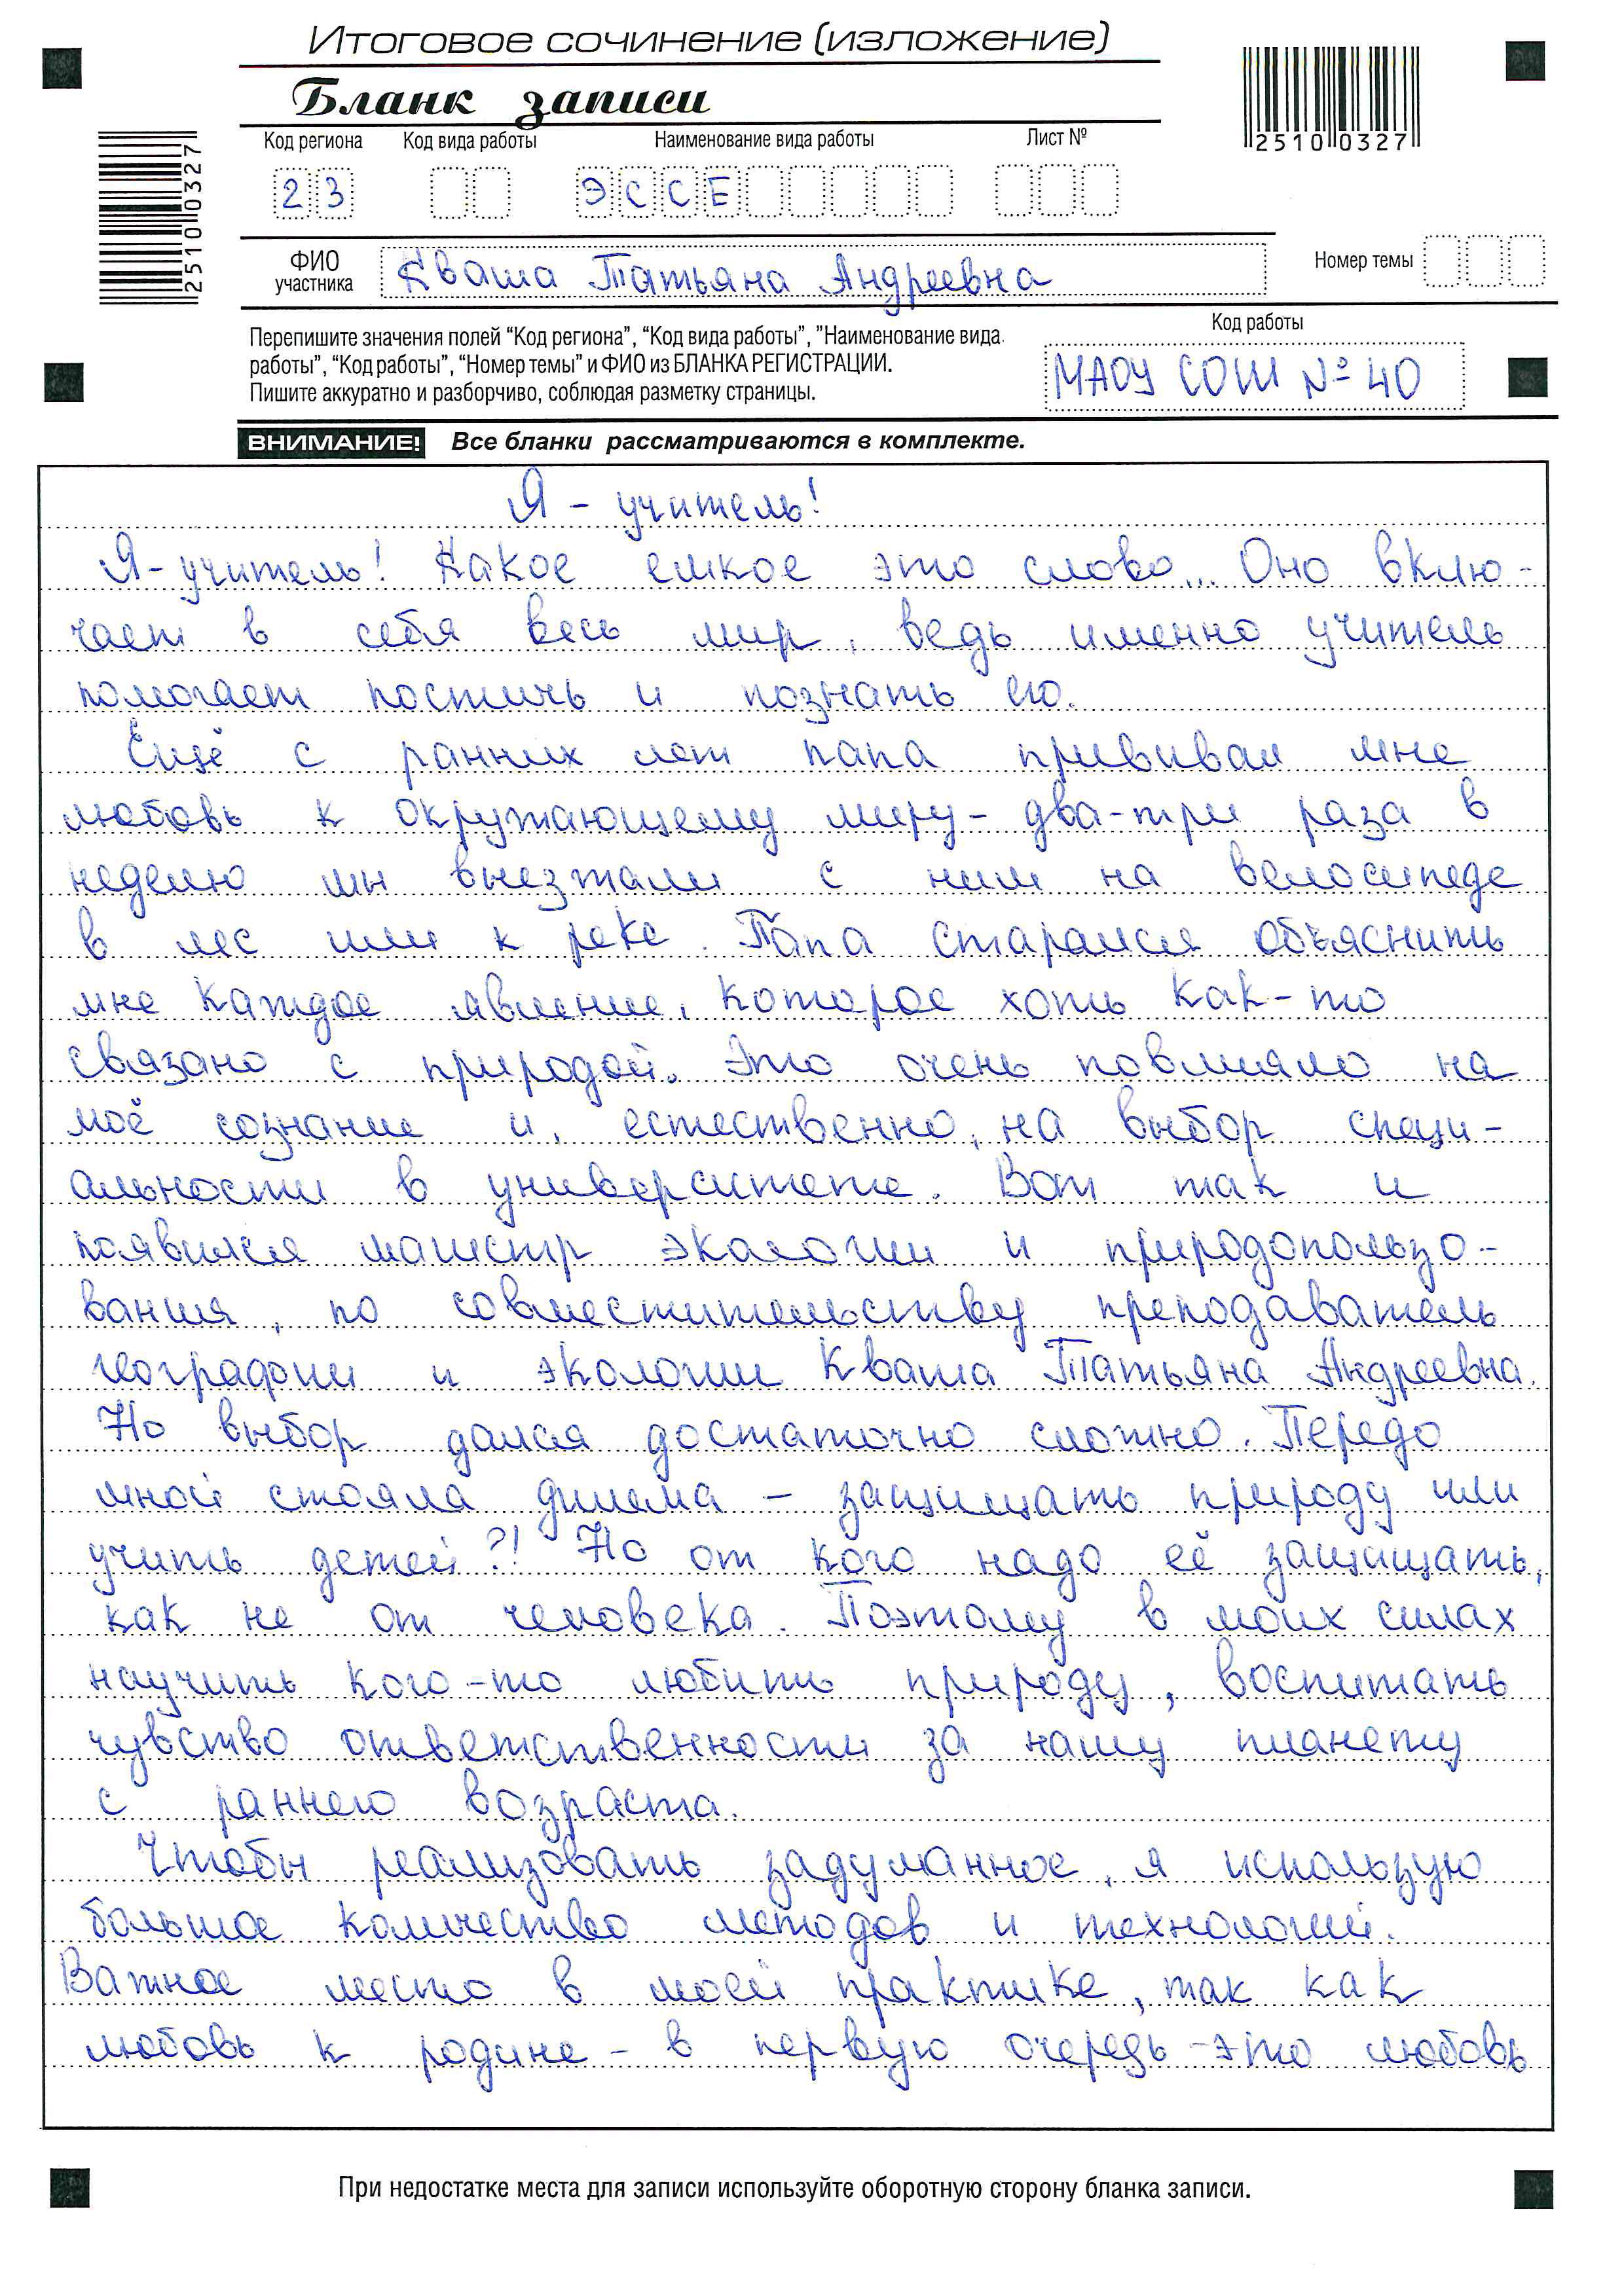 Итоговое сочинение (изложение)
Бланк записи
Код региона Код вида работы Наименование вида работы Лист №
2510 0327
2510 0327
23 ЭССЕ
ФИО участника Кваша Татьяна Андреевна Номер темы
Перепишите значения полей “Код региона”, “Код вида работы”, ”Наименование вида
работы”, “Код работы”, “Номер темы” и ФИО из БЛАНКА РЕГИСТРАЦИИ.
Пишите аккуратно и разборчиво, соблюдая разметку страницы.
Код работы
МАОУ СОШ № 40
ВНИМАНИЕ! Все бланки рассматриваются в комплекте.
Я - учитель!
Я - учитель! Какое емкое это слово... Оно вклю-
чает в себя весь мир, ведь именно учитель
помогает постичь и познать его.
Ещё с ранних лет папа прививал мне
любовь к окружающему миру - два-три раза в
неделю мы выезжали с ним на велосипеде
в лес или к реке. Папа старался объяснить
мне каждое явление, которое хоть как-то
связано с природой. Это очень повлияло на
моё сознание и, естественно, на выбор специ-
альности в университете. Вот так и
появился магистр экологии и природопользо-
вания, по совместительству преподаватель
географии и экологии Кваша Татьяна Андреевна.
Но выбор дался достаточно сложно. Передо
мной стояла дилема - защищать природу или
учить детей?! Но от кого надо её защищать,
как не от человека. Поэтому в моих силах
научить кого-то любить природу, воспитать
чувство ответственности за нашу планету
с раннего возраста.
Чтобы реализовать задуманное, я использую
большое количество методов и технологий.
Важное место в моей практике, так как
любовь к родине - в первую очередь - это любовь
При недостатке места для записи используйте оборотную сторону бланка записи.